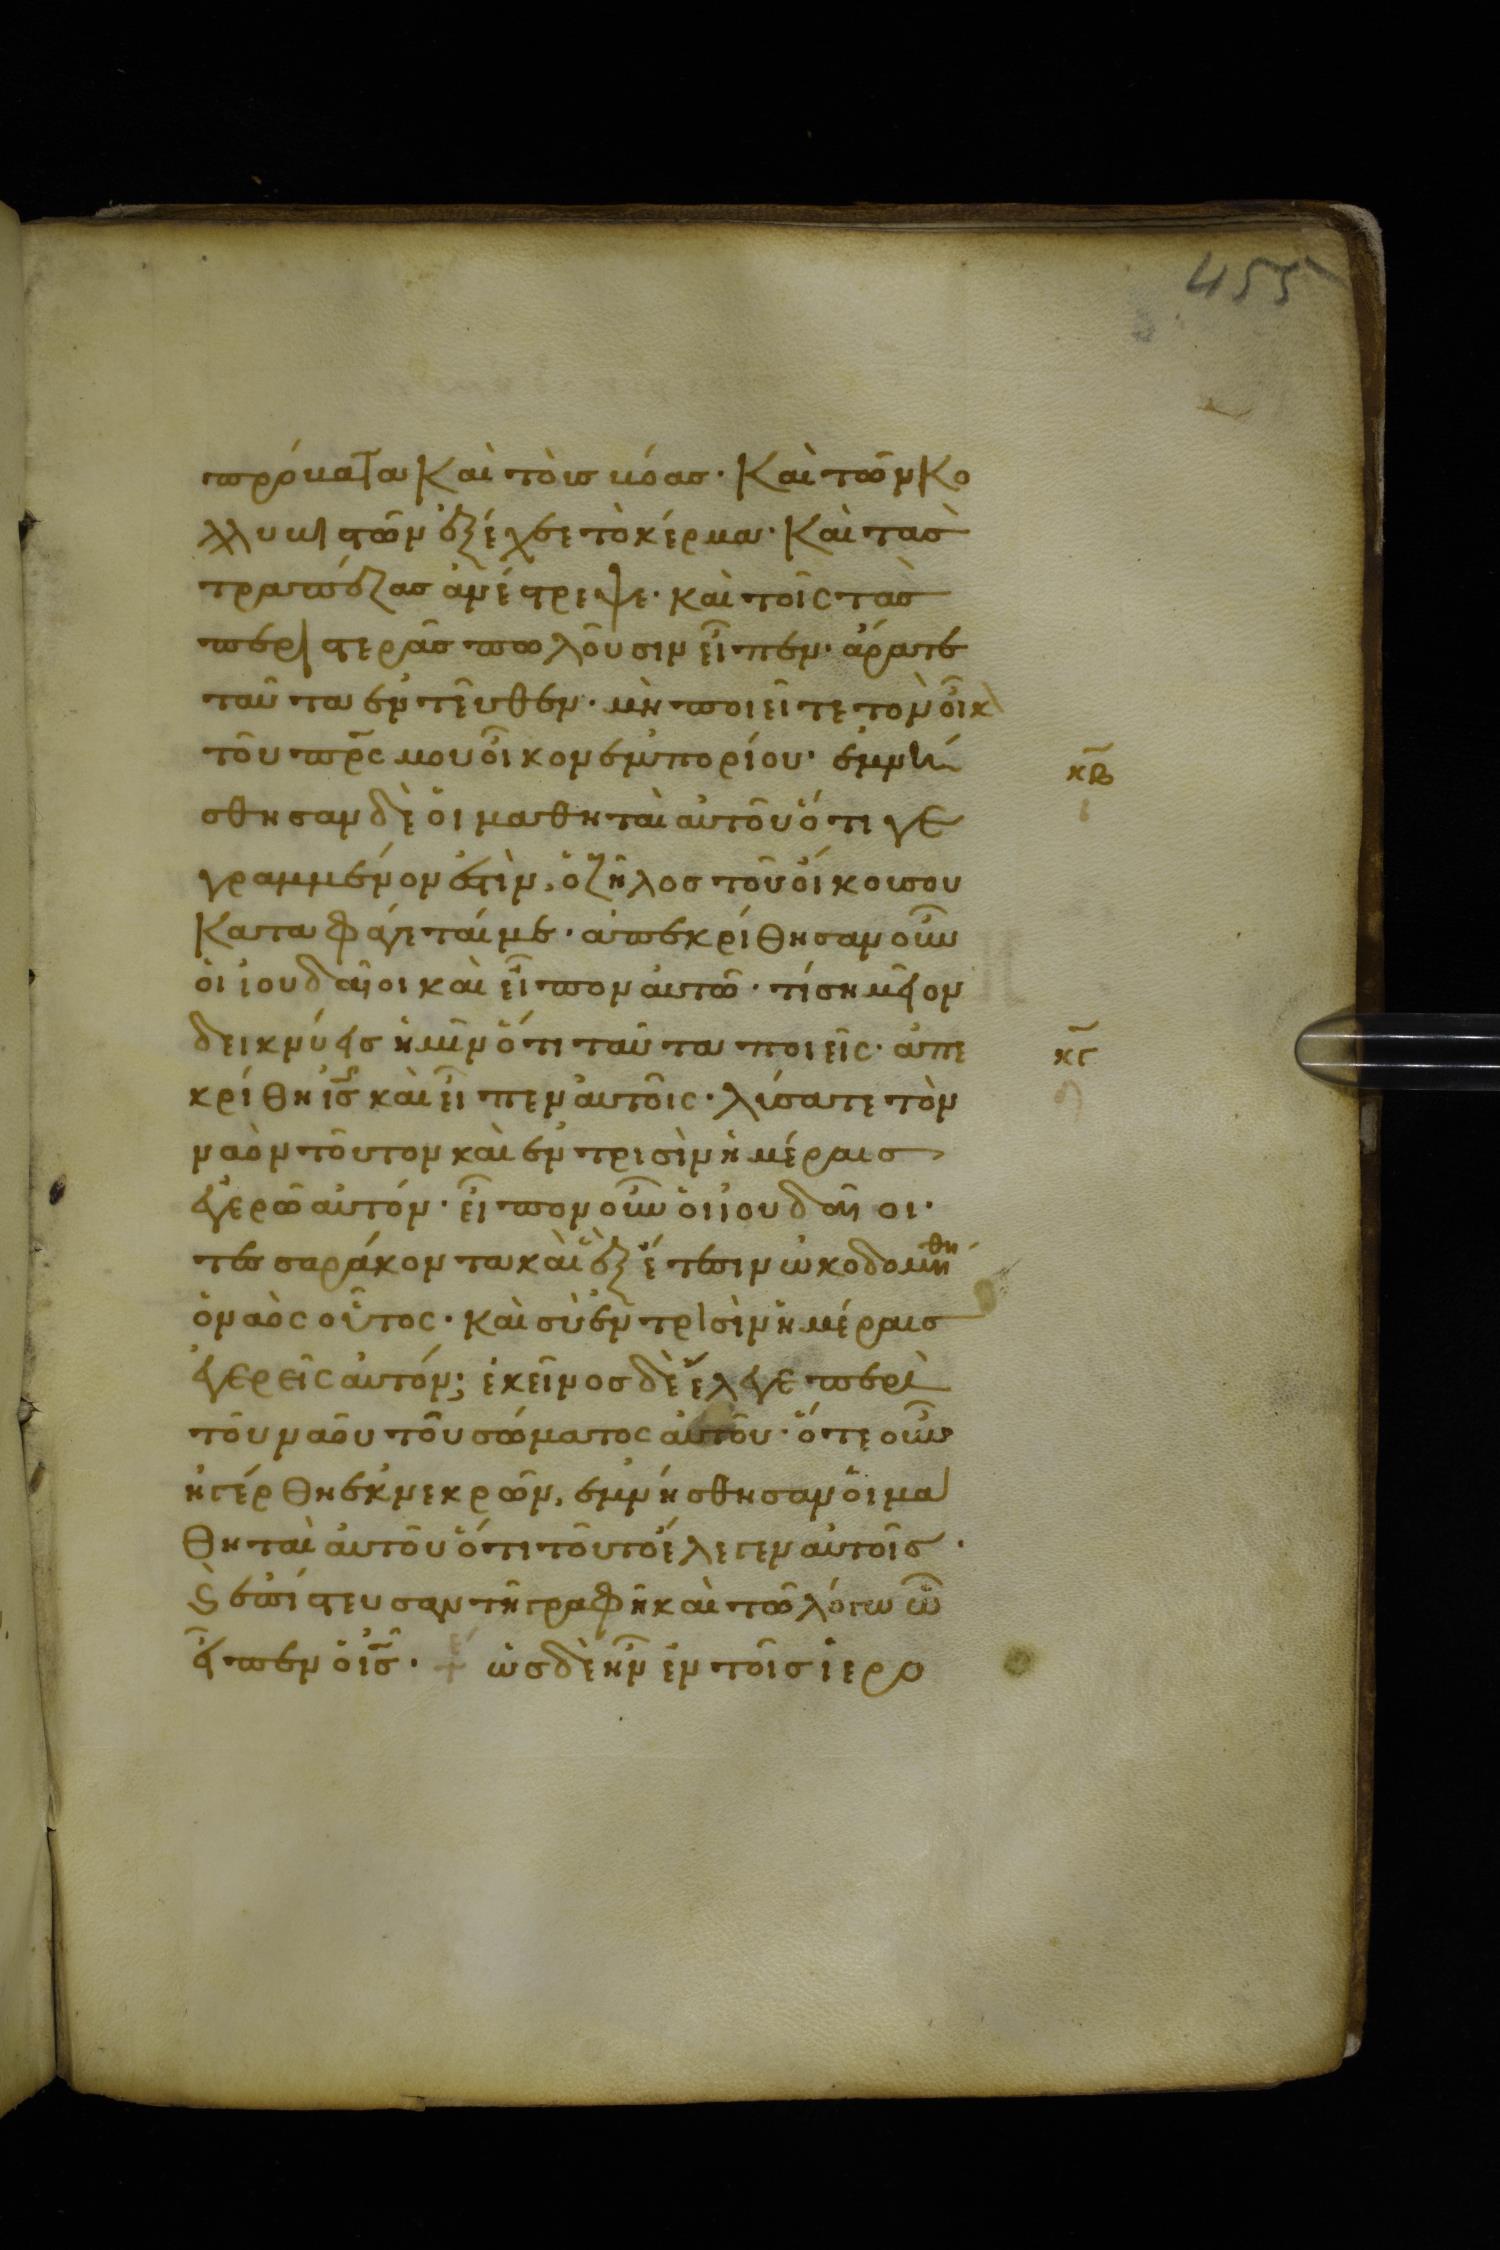 455
πρόβατα καὶ τοὺς βόας· καὶ τῶν κο
λλυβιστῶν ἐξέχεε τὸ κέρμα· καὶ τὰσ
τραπέζας ἀνέστρεψε· καὶ τοῖς τὰσ
περιστερὰς πωλοῦσιν εἶπεν· ἄρατε
ταῦτα ἐντεῦθεν· μὴ ποιεῖτε τὸν οἶκ
τοῦ πρ̅ς μου οἶκον ἐμπορίου· ἐμνή
κβ
ι
σθησαν δὲ οἱ μαθηταὶ αὐτοῦ ὅτι γε
γραμμένον ἐστὶν, ὁ ζῆλοσ τοῦ οἴκου σου
καταφάγεταί με· ἀπεκρίθησαν οὖν
οἱ ἰουδαῖοι καὶ εἶπον αὐτῶ· τί σημεῖον
δεικνύεισ ἡμῖν ὅτι ταῦτα ποιεῖς· ἀπε
κγ
κρίθη ἰ̅ς̅ καὶ εἶπεν αὐτοῖς· λύσατε τὸν
ναὸν τοῦτον καὶ ἐν τρισὶν ἡμέραισ
ἐγερῶ αὐτόν· εἶπον οὖν οἱ ἰουδαῖοι·
τεσσαράκοντα καὶ ἓξ ἔτεσιν ὠκοδομήθη
ὁ ναὸς οὗτος· καὶ σὺ ἐν τρισὶν ἡμέραισ
ἐγερεῖς αὐτόν; ἐκεῖνοσ δὲ ἔλεγε περὶ
τοῦ ναοῦ τοῦ σώματος αὐτοῦ· ὅτε οὖν
ἠγέρθη ἐκ νεκρῶν, ἐμνήσθησαν οἱ μα
θηταὶ αὐτοῦ ὅτι τοῦτο ἔλεγεν αὐτοῖσ·
ϗ ἐπίστευσαν τῆ γραφῆ καὶ τῶ λόγω ὧ
εἶπεν ὁ ἰ̅ς̅· + ὡσ δὲ ἦν ἐν τοῖσ ἱερο